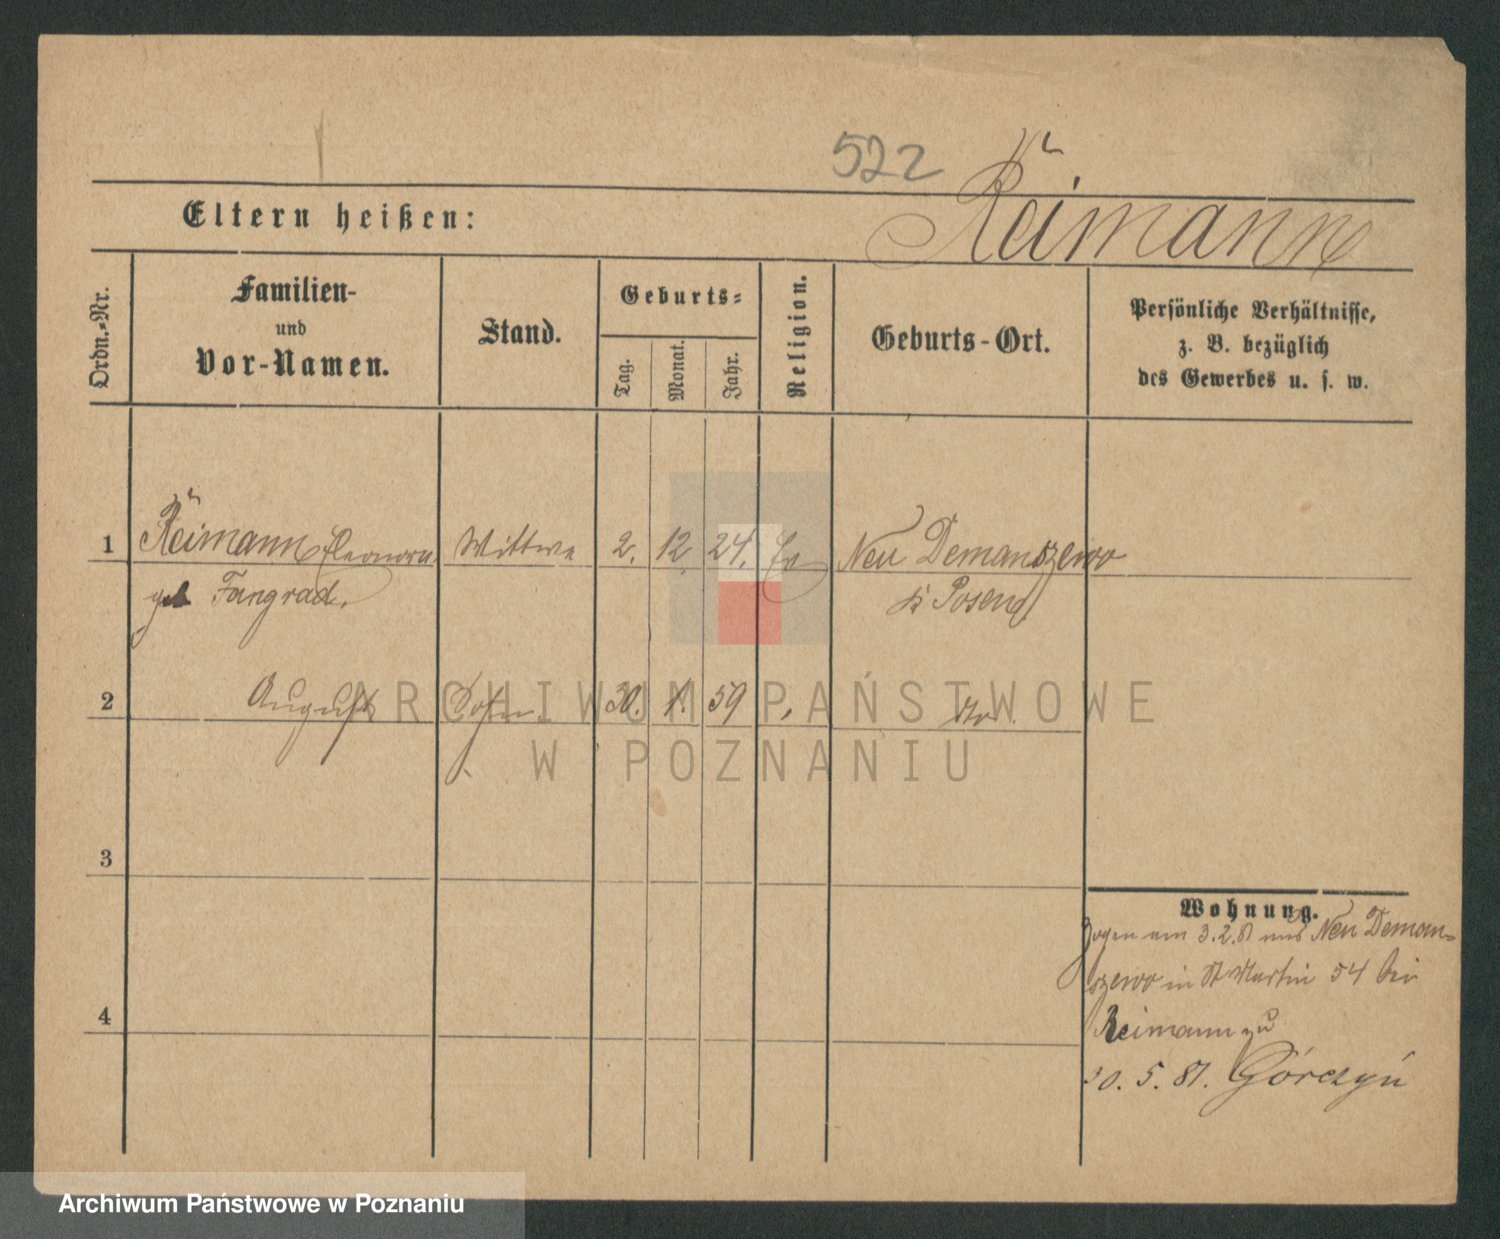 522
Reimann
Eltern heißen:
Ordn.-Nr.
Familien-
und
Vor-Namen.
Stand.
Geburts-
Tag.
Monat.
Jahr.
Religion.
Geburts-Ort.
Persönliche Verhältnisse,
z. B. bezüglich
des Gewerbes u. s. w.
1 Reimann Eleonora Wittwe 2. 12. 24. Ev Neu Demanszewo
geb Fangrad. Posen
2 August Sohn 30. 1. 59 do.
3
4
Wohnung.
Zogen am 3.2.81 aus Neu Deman-
szewo in St Martin 54 bei
Reimann zu
30. 5. 81. Górczyń
ARCHIWUM PAŃSTWOWE
W POZNANIU
Archiwum Państwowe w Poznaniu